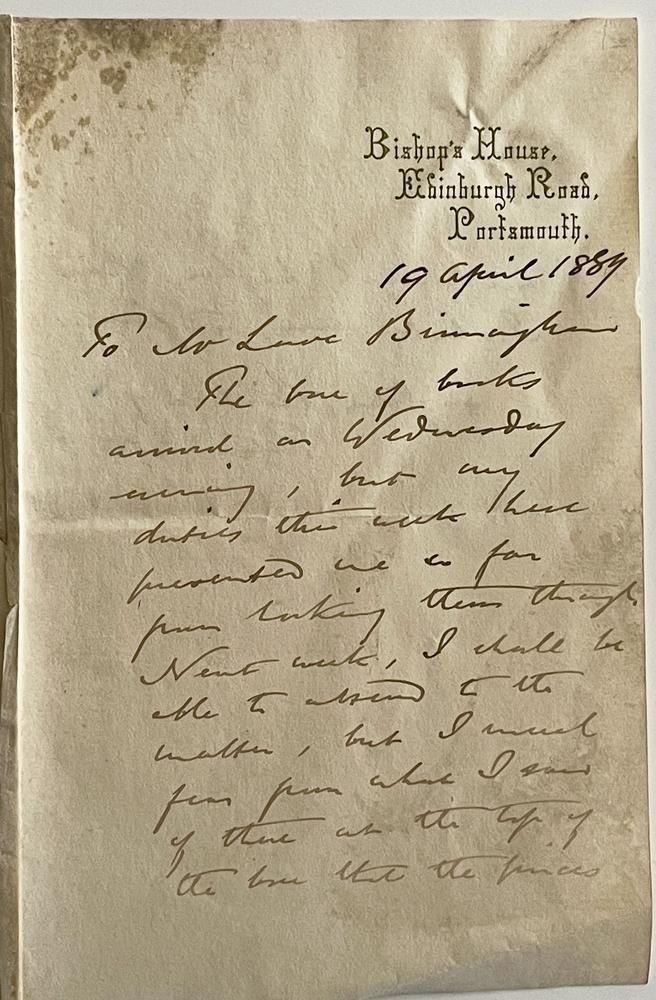 Bishop's House,
Edinburgh Road,
Portsmouth.
19 April 1889
To Mr Lowe Birmingham
The box of books
arrived on Wednesday
evening, but my
duties this week have
prevented me so far
from looking them through
Next week, I shall be
able to attend to the
matter, but I much
fear from what I saw
of those at the top of
the box that the prices